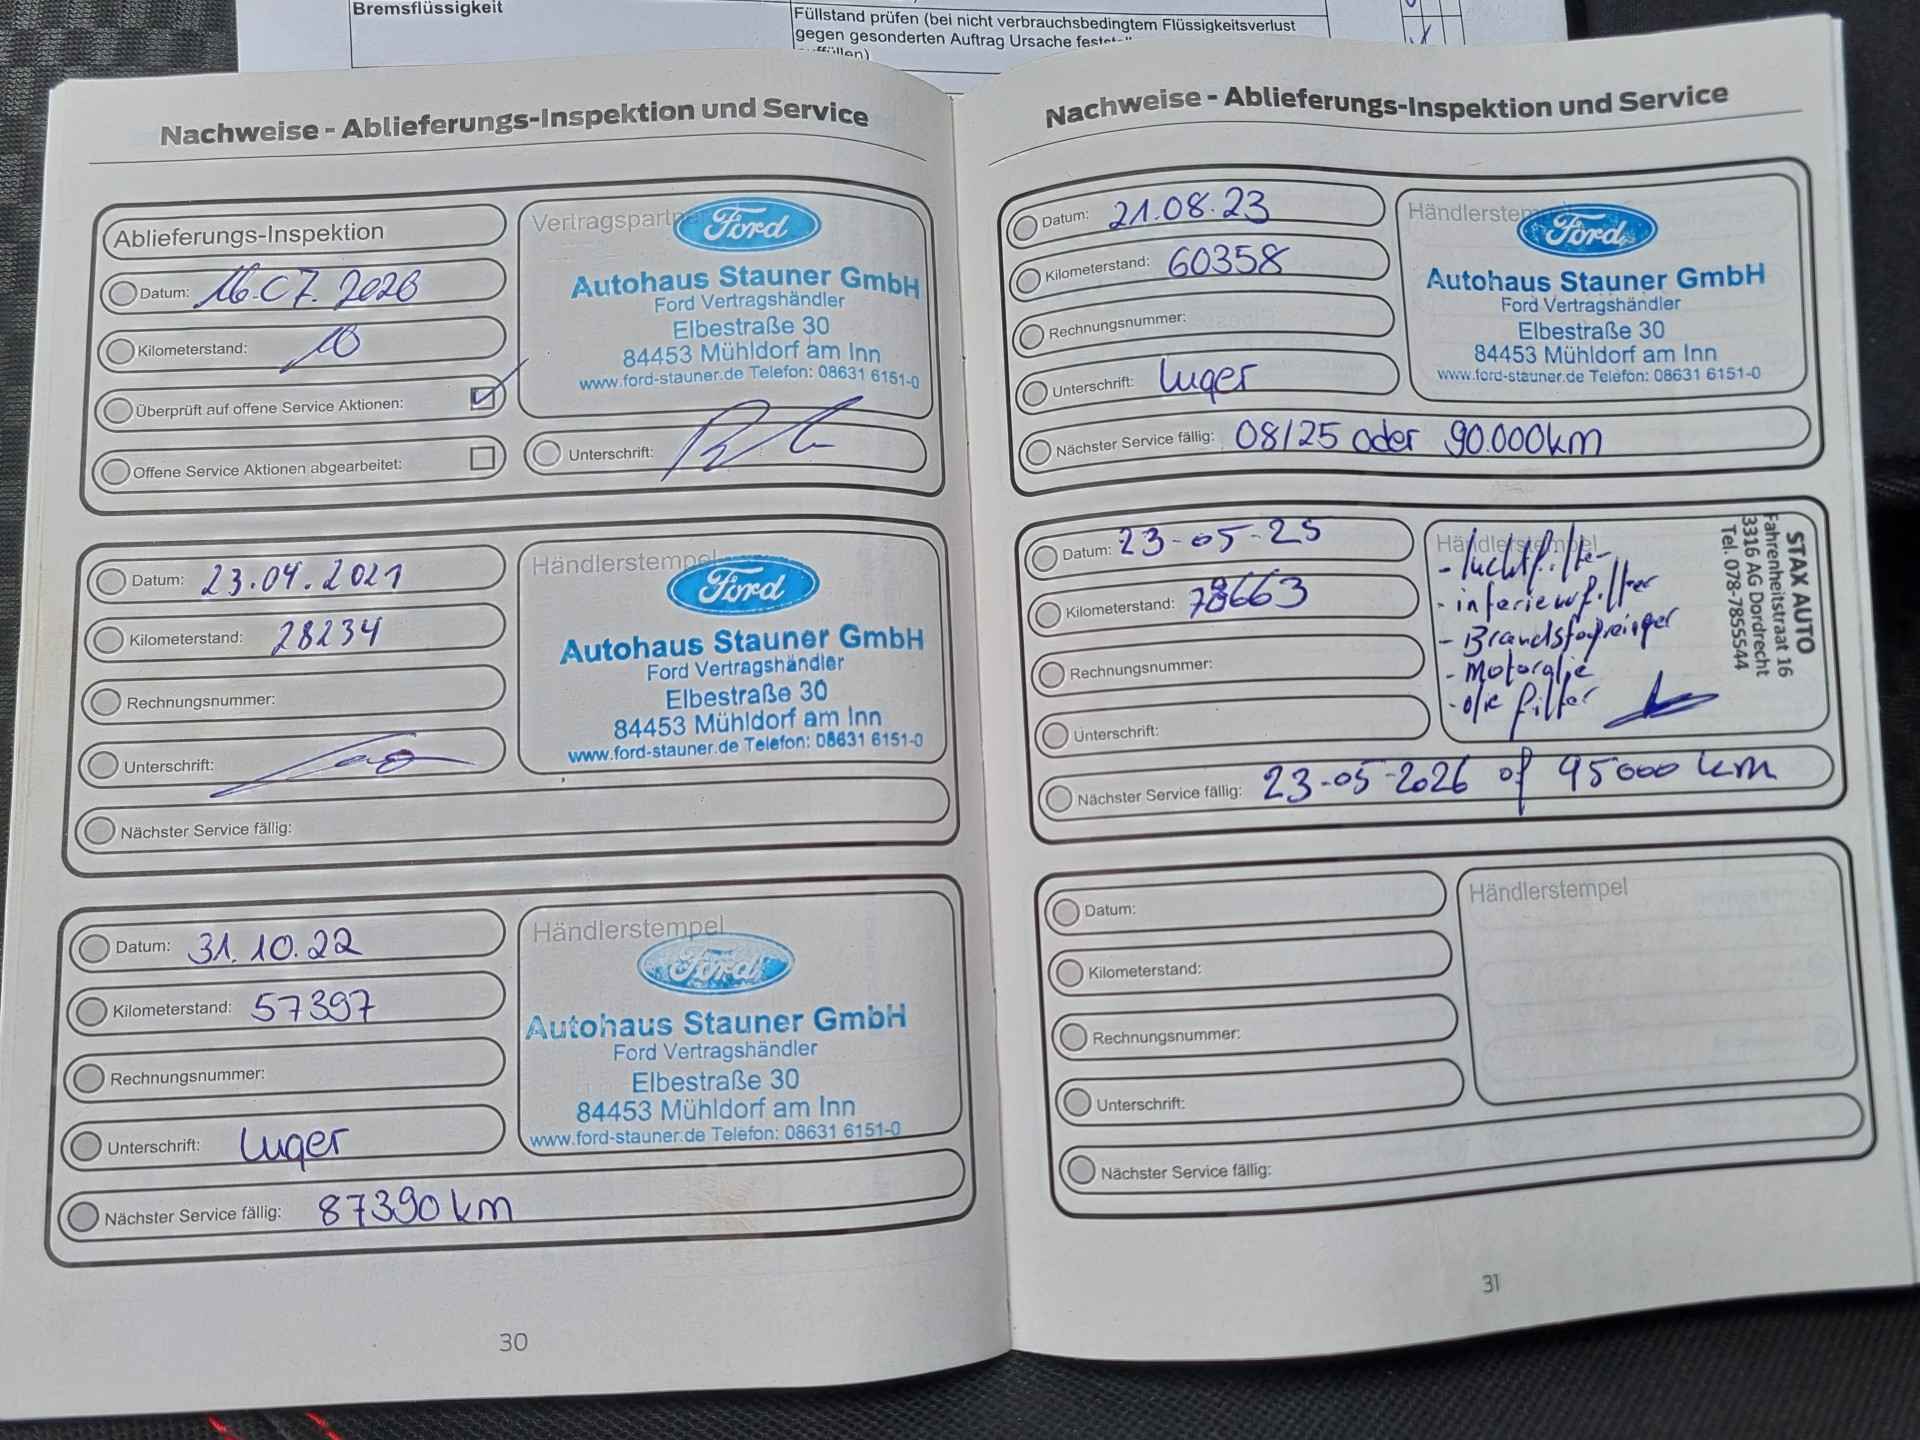 Bremsflüssigkeit
Füllstand prüfen (bei nicht verbrauchsbedingtem Flüssigkeitsverlust
gegen gesonderten Auftrag Ursache
Nachweise - Ablieferungs-Inspektion und Service
Ablieferungs-Inspektion
Datum: 16.07.2020
Kilometerstand: 10
Überprüft auf offene Service Aktionen:
Offene Service Aktionen abgearbeitet:
Vertragspartner
Ford
Autohaus Stauner GmbH
Ford Vertragshändler
Elbestraße 30
84453 Mühldorf am Inn
www.ford-stauner.de Telefon: 08631 6151-0
Unterschrift:
Datum: 23.04.2021
Kilometerstand: 28234
Rechnungsnummer:
Unterschrift:
Nächster Service fällig:
Händlerstempel
Ford
Autohaus Stauner GmbH
Ford Vertragshändler
Elbestraße 30
84453 Mühldorf am Inn
www.ford-stauner.de Telefon: 08631 6151-0
Datum: 31.10.22
Kilometerstand: 57397
Rechnungsnummer:
Unterschrift: Luger
Nächster Service fällig: 87390 km
Händlerstempel
Ford
Autohaus Stauner GmbH
Ford Vertragshändler
Elbestraße 30
84453 Mühldorf am Inn
www.ford-stauner.de Telefon: 08631 6151-0
30
Nachweise - Ablieferungs-Inspektion und Service
Datum: 21.08.23
Kilometerstand: 60358
Rechnungsnummer:
Unterschrift: Luger
Nächster Service fällig: 08/25 oder 90.000km
Händlerstempel
Ford
Autohaus Stauner GmbH
Ford Vertragshändler
Elbestraße 30
84453 Mühldorf am Inn
www.ford-stauner.de Telefon: 08631 6151-0
Datum: 23-05-25
Kilometerstand: 78663
Rechnungsnummer:
Unterschrift:
Nächster Service fällig: 23-05-2026 of 95000 km
Händlerstempel
- luchtfilter
- interieurfilter
- Brandstofreiniger
- Motorolie
- olie filter
STAX AUTO
Fahrenheitstraat 16
3316 AG Dordrecht
Tel. 078-7855544
Datum:
Kilometerstand:
Rechnungsnummer:
Unterschrift:
Nächster Service fällig:
Händlerstempel
31